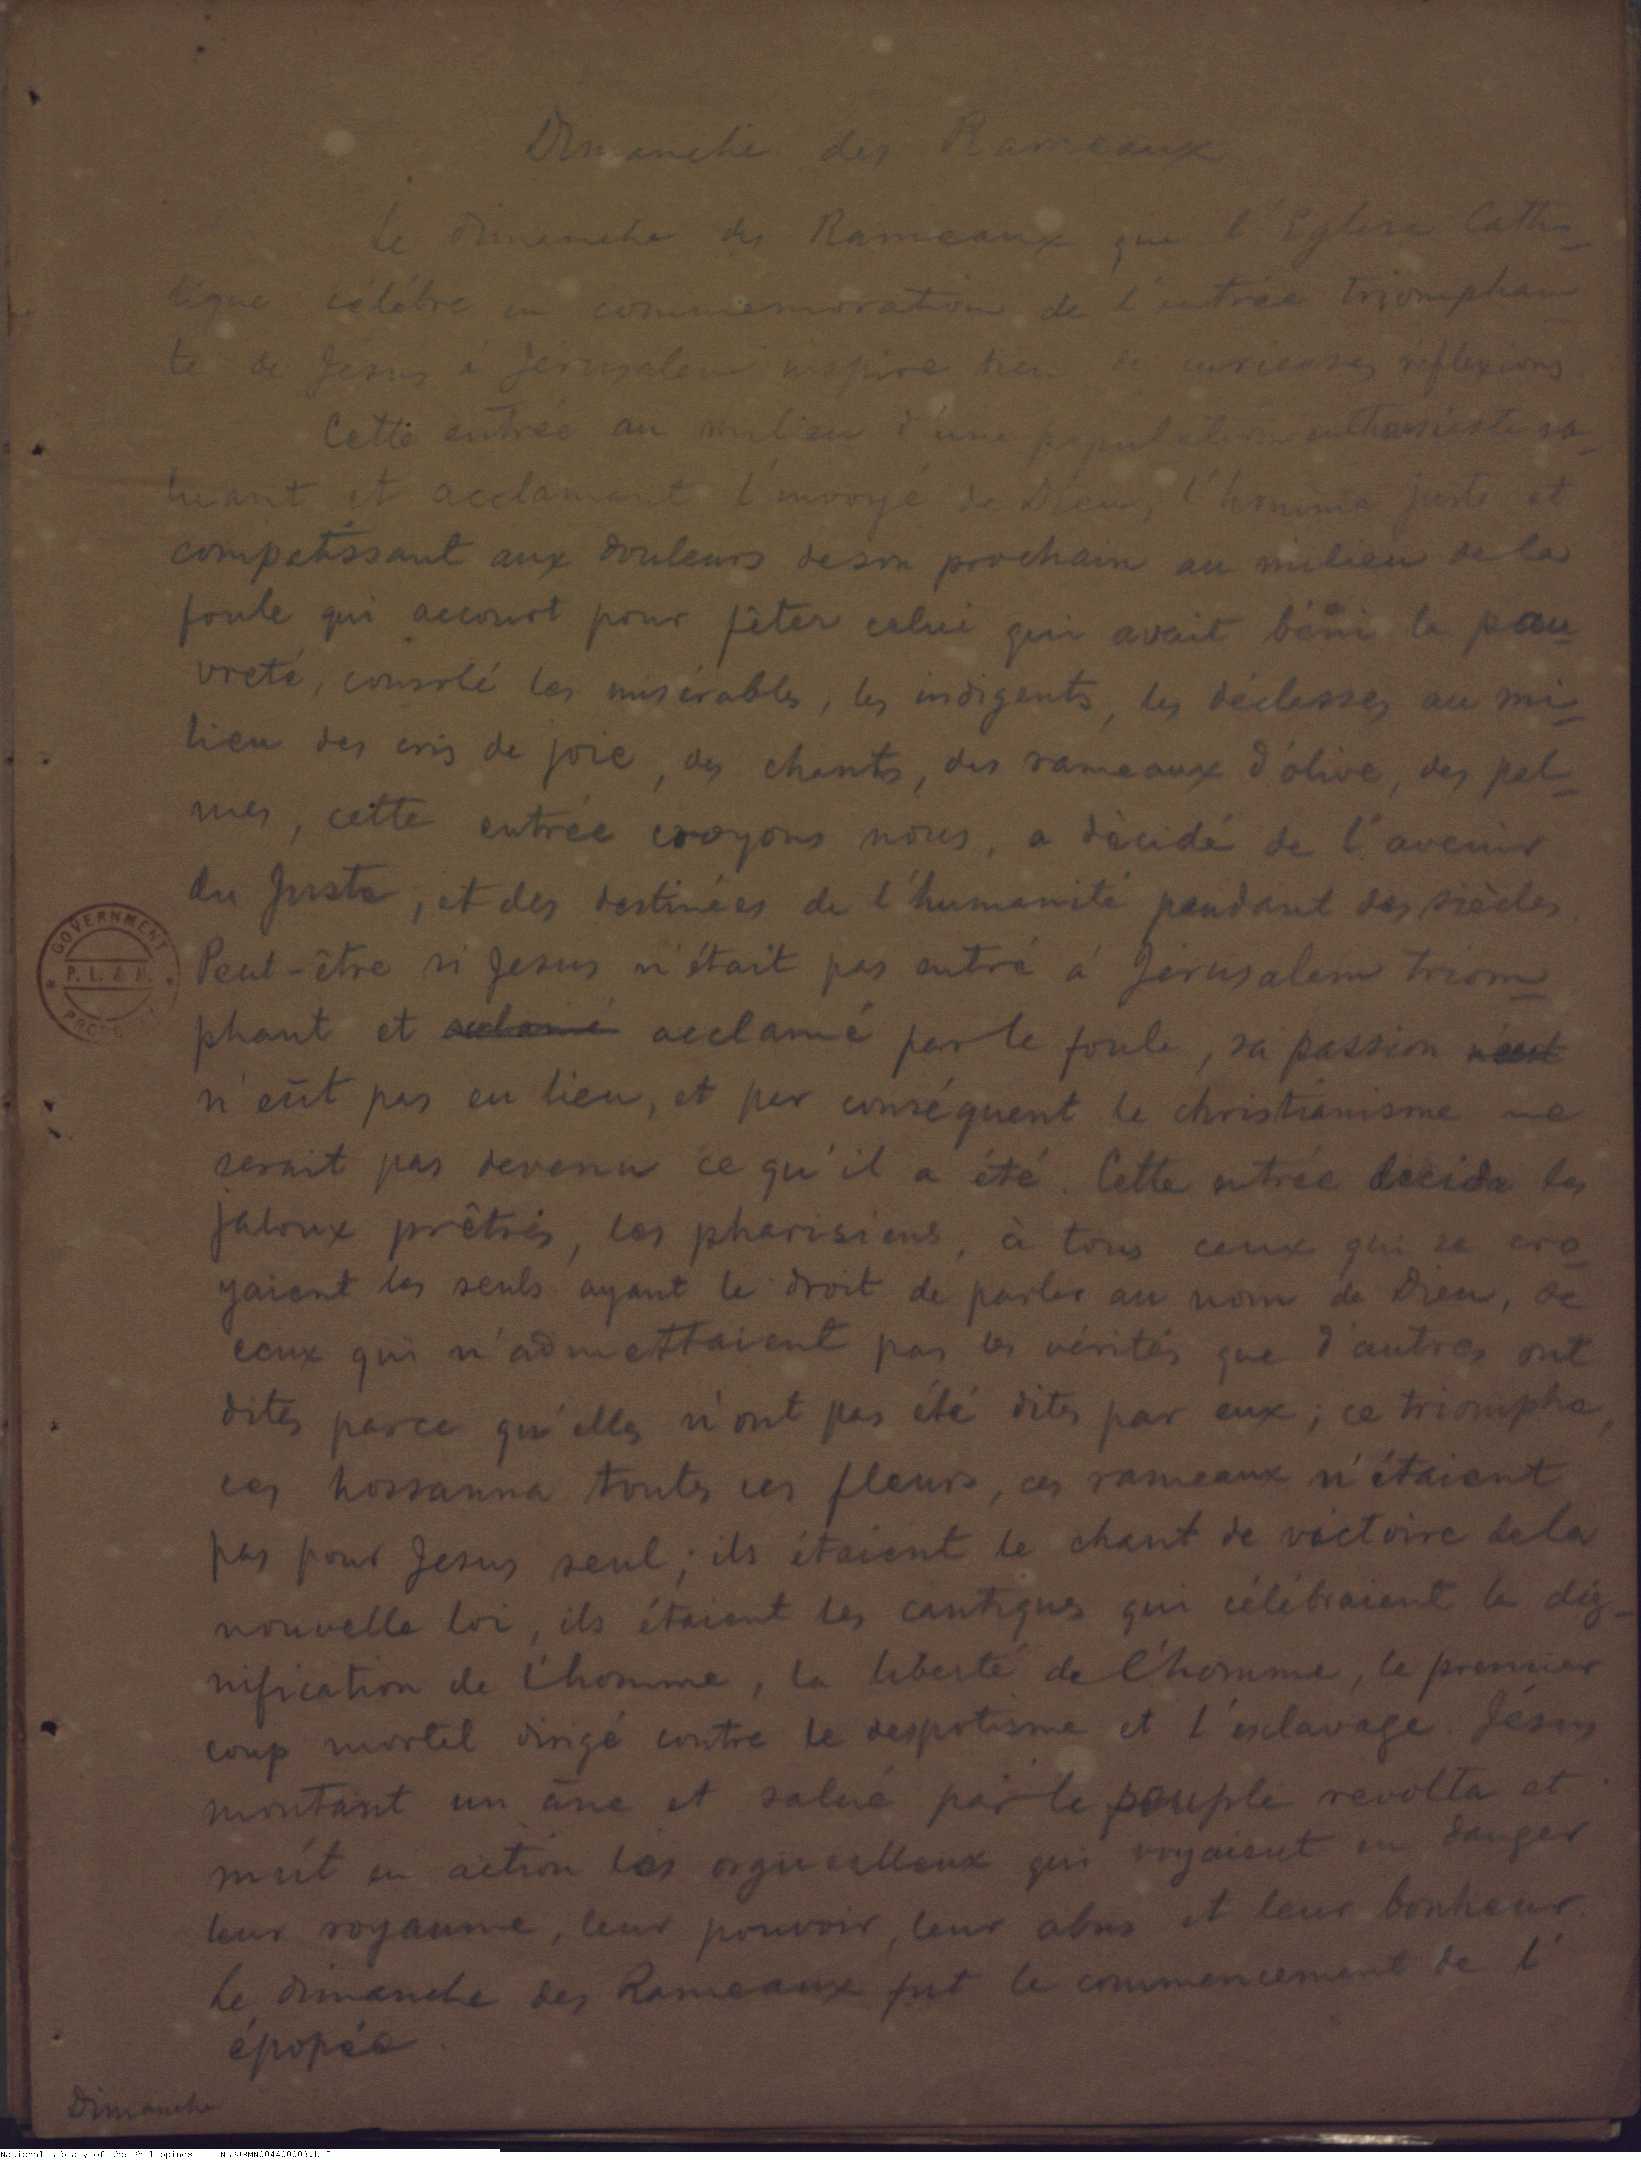 Dimanche des Rameaux
Le dimanche des Rameaux que l'Eglise Catho-
lique célébre en commemoration de l'entrée triomphan-
te de Jésus à Jérusalem inspire bien de curieuses réflexions
Cette entrée au milieu d'une population enthousiaste sa-
luant et acclamant l'envoyé de Dieu, l'homme juste et
compatissant aux douleurs de son prochain au milieu de la
foule qui accourt pour fêter celui qui avait béni la pau-
vreté, consolé les misérables, les indigents, les déclasses, au mi-
lieu des cris de joie, des chants, des rameaux d'olive, des pal-
mes, cette entrée croyons nous, a décidé de l'avenir
du Juste, et des destinées de l'humanité pendant des siècles.
Peut-être si Jesus n'était pas entré à Jérusalem triom-
phant et acclamé acclamé par le foule, sa passion n'eut
n'eût pas eu lieu, et par conséquent le christianisme ne
serait pas devenu ce qu'il a été. Cette entrée decida les
jaloux prêtres, les pharisiens, à tous ceux qui se cro-
yaient les seuls ayant le droit de parler au nom de Dieu, de
ceux qui n'admettaient pas les vérités que d'autres ont
dites parce qu'elles n'ont pas été dites par eux; ce triomphe,
ces hossanna toutes ces fleurs, ces rameaux n'étaient
pas pour Jesus seul; ils étaient le chant de victoire de la
nouvelle loi, ils étaient les cantiques qui célébraient la dig-
nification de l'homme, la liberté de l'homme, le premier
coup mortel dirigé contre le despotisme et l'esclavage. Jésus
montant un âne et salué par le peuple revolta et
mit en action les orgueilleux qui voyaient en danger
leur royaume, leur pouvoir, leur abus et leur bonheur.
Le dimanche des Rameaux fut le commencement de l'
épopée.
Dimanche
GOVERNMENT
P. L. & M.
National Library of the Philippines